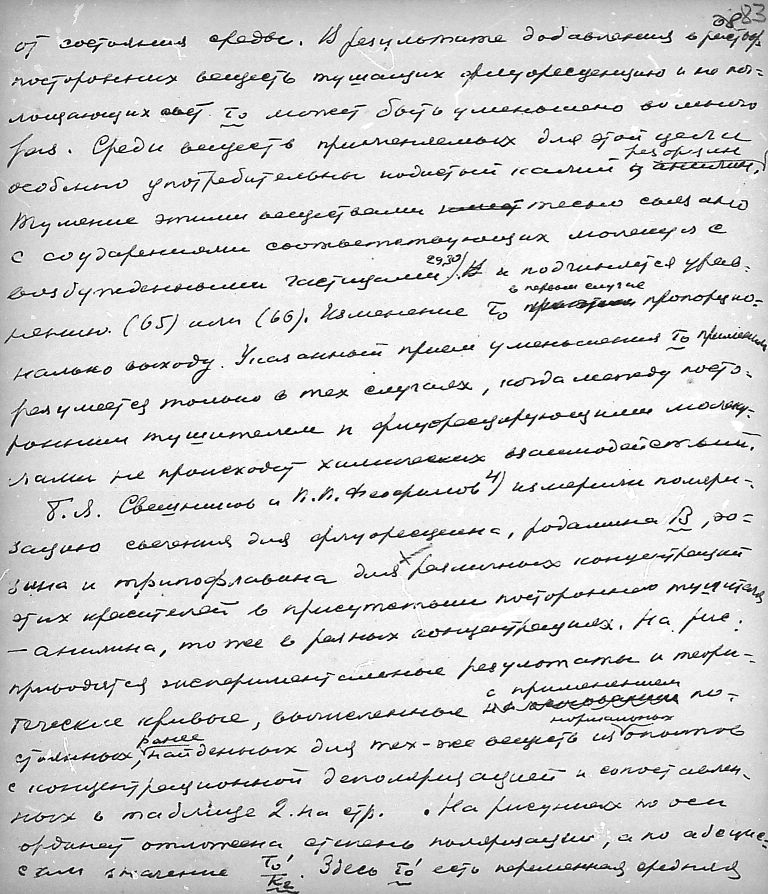 83
от состояния среды. В результате добавления в раствор
посторонних веществ тушащих флуоресценцию и не пог-
лощающих свет τ₀ может быть уменьшено во много
раз. Среди веществ применяемых для этой цели
особенно употребительны иодистый калий и анилин.
резорцин
Тушение этими веществами тесно связано
с соударениями соответствующих молекул с
возбужденными частицами 29,30) и подчиняется урав-
нению (65) или (66). Изменение τ₀ в первом случае пропорцио-
нально выходу. Указанный прием уменьшения τ₀ применим
разумеется только в тех случаях, когда между посто-
ронним тушителем и флуоресцирующими молеку-
лами не происходят химических взаимодействий.
Б.Я. Свешников и П.П. Феофилов 4) измерили поляри-
зацию свечения для флуоресцеина, родамина B, эо-
зина и трипофлавина для различных концентраций
этих красителей в присутствии постороннего тушителя
— анилина, тоже в разных концентрациях. На рис.
приводятся экспериментальные результаты и теоре-
тические кривые, вычисленные с применением по-
стоянных, ранее найденных для тех-же веществ из нормальных опытов
с концентрационной деполяризацией и сопоставлен-
ных в таблице 2. на стр. . На рисунках по оси
ординат отложена степень поляризации, а по абсцис-
сам значение τ₀'/Kc. Здесь τ₀' есть переменная средняя